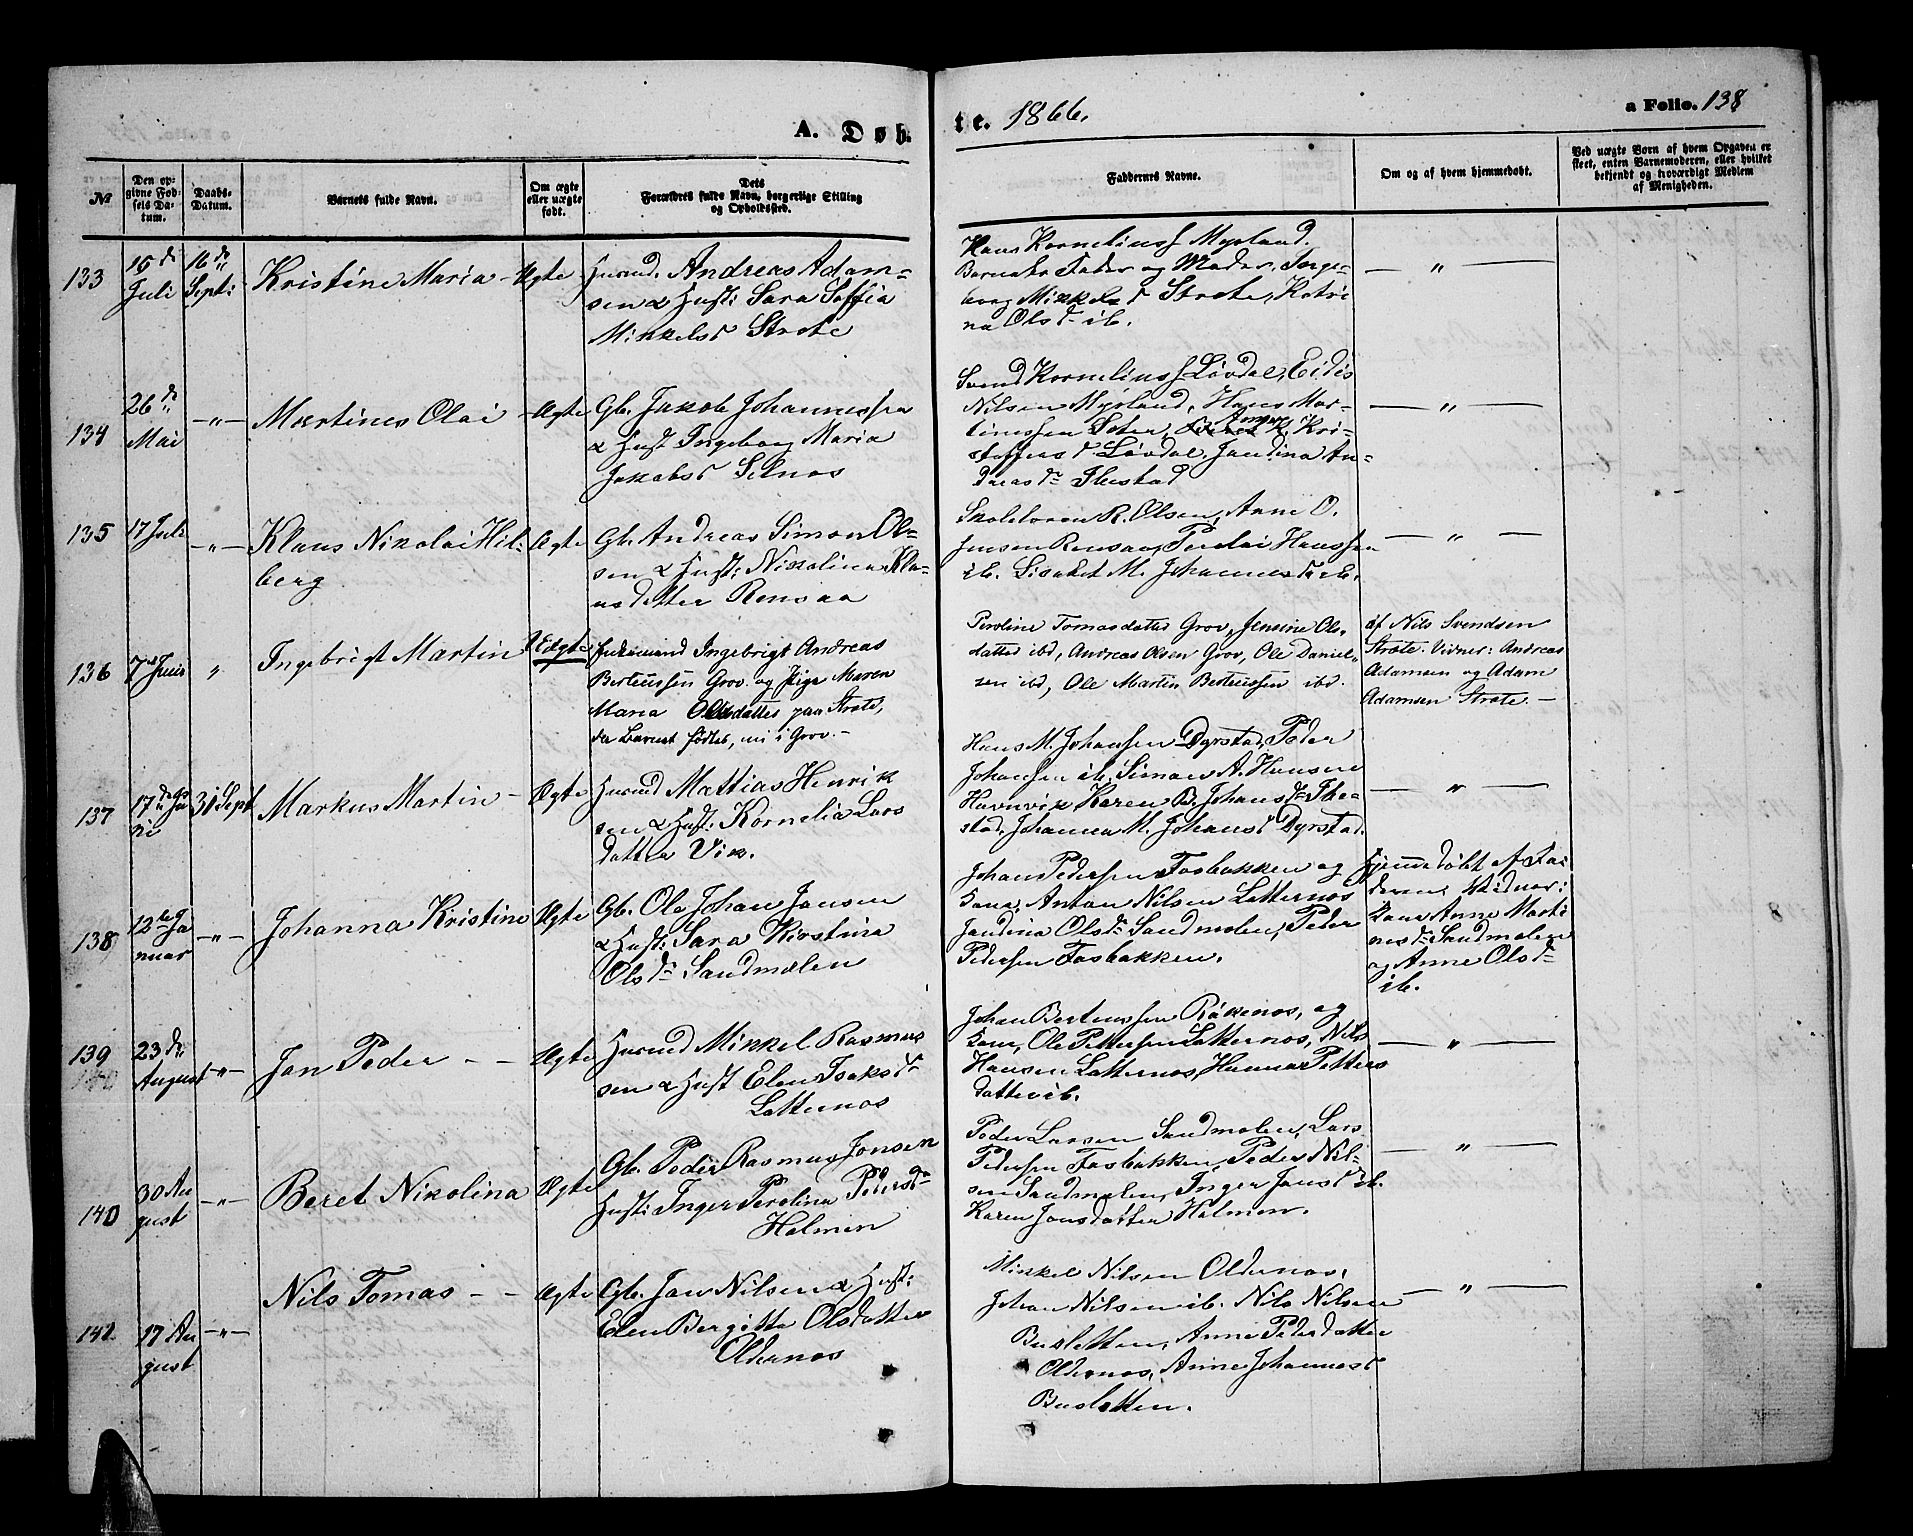 A. Døb-
te. 1866.
a Folio. 138
№
Den op-
givne Fød-
sels Da-
tum.
Daabs-
Datum.
Barnets fulde Navn.
Om ægte
eller uægte
født.
Dets
Forældres fulde Navn, borgerlige Stilling
og Opholdssted.
Faddernes Navne.
Om og af hvem hjemmedøbt.
Ved uægte Børn af hvem Opgaven er
skeet, enten Barnemoderen, eller hvilket
bekjendt og troværdigt Medlem
af Menigheden.
133
15de
Juli
16de
Septi
Kristine Maria -
Ægte
Husmd. Andreas Adam-
sen & Hust: Sara Soffia
Minkelsd Strote
Hans Korneliuss Myrland.
Barnets Fader og Moder, Inge-
borg Minkelsd Strote, Katri
na Olsdr ib.
— " —
134
26de
Mai
—"—
Martines Olai
- Ægte
Gb. Jakob Johannessen
& Hust Ingeborg Maria
Jakobsd Selnos
Svend Korneliuss Løvdal, Eidis
Nilsen Myrland, Hans Mar-
tinussen Soter, Kri-
stoffersd Løvdal, Jandina An-
dreasdr Flustad
— " —
135
17 Juli
—"—
Klaus Nikolai Hil-
berg
Ægte
Gb. Andreas Simon Ol-
sen & Hust: Nikolina Kla-
usdetter Rensaa
Skolelærer R. Olsen, Anne O.
Jensen Rensaa, Perdai Hanssen
ib. Lisabet M. Johannesdr ib.
— " —
136
7de Juni
"
Ingebrigt Martin
Uægte
Ingebrigt Andreas
Berteussen Grov. og Pige Maren
Maria Olsdatter paa Strote,
da Barnet fødtes, nu i Grov. -
Peroline Tomasdatter Grov, Jensine Ols-
datter ibd, Andreas Olsen Grov, Ole Daniel-
sen ibd, Ole Martin Berteussen ibd.
af Nils Svendsen
Strote. Vidner: Andreas
Adamsen og Adam
Adamsen Strote. -
137
17de Ju
ni
31 Sept
Markus Martin -
Ægte
Husmd Mattias Henrik
sen & Hust: Kornelia Lars
datter Vik.
Hans M. Johansen Dyrstad, Peder
Johansen ib. Simon A. Hansen
Havnvik Karen B. Johansdr The-
stad, Johanna M. Johansd Dyrstad.
— " —
138
12te Ja
nuar
—"—
Johanna Kristine
Ægte
Gb. Ole Johan Jensen
& Hust: Sara Kirstina
Olsdr Sandmolen
Johan Pedersen Fosbakken og
Kone, Anton Nilsen Latternos
Jandina Olsdr Sandmolen, Peder
Pedersen Fosbakken.
Hjemmedøbt af Fa-
deren, Vidner:
Kone Anne Marti
nesdr Sandmolen
og Anne Olsdr
ib.
139
23de
August
—"—
Jan Peder - -
Ægte
Husmd Minkel Rasmus
sen & Hust Elen Isaksdr
Latternos
Johan Berteussen Røkenos, og
Kone, Ole Pettersen Latternos, Nils
Hansen Latternos, Hanna Petters
datter ib.
— " —
140
30 Au
gust
—"—
Beret Nikolina
Ægte
Gb. Peder Rasmus Jonsen
Hust: Inger Perolina Pedersdr
Holmen
Peder Larsen Sandmolen, Lars
Pedersen Fosbakken, Peder Nil-
sen Sandmolen, Inger Jansd ib.
Karen Jonsdatter Holmen.
— " —
141
17 Au
gust
—"—
Nils Tomas - -
Ægte
Gb. Jan Nilsen & Hust:
Elen Bergitte Olsdatter
Oldernos
Minkel Nilsen Oldernos,
Johan Nilsen ib. Nils Nilsen
Busletten, Anne Pedersdatter
Oldernos, Anne Johannesd
Busletten.
— " —